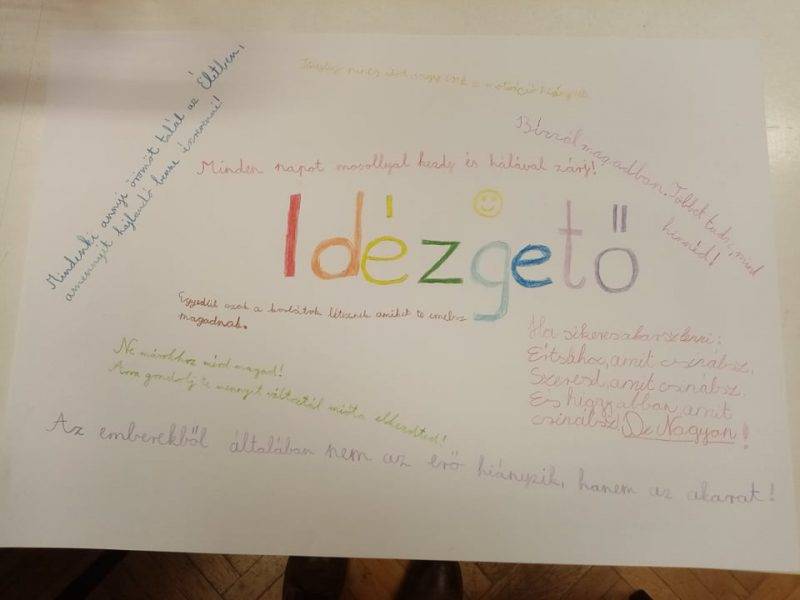 nincs
Mindenki annyi örömöt talál az Életben,
amennyit hajlandó benne észrevenni!
Bízzál magadban. Többet tudsz, mind
hinnéd!
Minden napot mosollyal kezdj és hálával zárj!
Idézgető
Egyedüli azok a korlátok léteznek amiket te emelsz
magadnak.
Ne másokhoz mérd magad!
Arra gondolj te mennyit változtál mióta elkezdted!
Ha sikeres akarsz lenni:
Értsdhoz, amit csinálsz.
Szeresd, amit csinálsz.
És higgy abban, amit
csinálsz! De Nagyon!
Az emberekből általában nem az erő hiányzik, hanem az akarat!